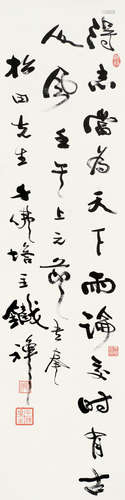 得志當為天下雨論交時有古
人風壬午上元節書奉
柗田先生千佛塔主鐵禪